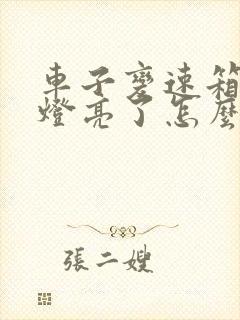 車子變速箱
燈亮了怎麼
張二嫂